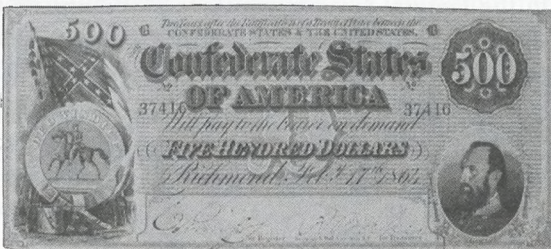 Two Years after the Ratification of a Treaty of Peace between the
CONFEDERATE STATES & THE UNITED STATES,
500
Confederate States
500
OF AMERICA
37416 37416
Will pay to the bearer on demand
FIVE HUNDRED DOLLARS
Richmond, Feb.y 17th 1864
for Register for Treasurer